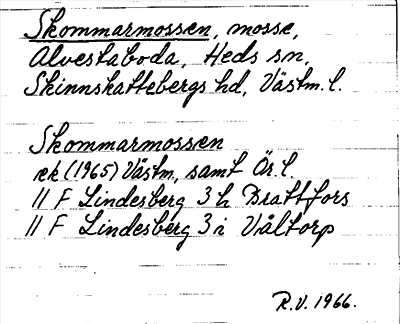 Skommarmossen, mosse,
Alvestaboda, Heds sn,
Skinnskattebergs hd, Västm. l.
Skommarmossen
ek (1965) Västm, samt Är. l.
11 F Lindesberg 3 h Brattfors
11 F Lindesberg 3 i Våltorp
R.V. 1966.